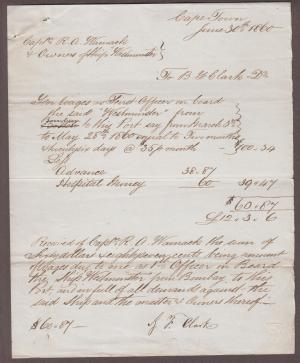 Cape Town
June 30th 1860
Captn R. A. Wamack
& Owners of Ship Westminster
To B F Clark Dr
For Wages as First Officer on board
the said "Westminster" from
Bombay to this Port say from March 3d
to May 28th 1860 equal to Two months
twenty six days @ $35 p month - $100.34
Less
Advance 38.87
Hospital Money 60 39.47
$60.87
£12.3.6
Received of Captn R. A. Wamack the sum of
Sixty dollars & eighty seven cents being amount
of Wages due to me as 1st Officer on Board
the Ship Westminster from Bombay to this
Port and in full of all demands against the
said Ship and the master & Owners thereof.
$60.87 B F Clark